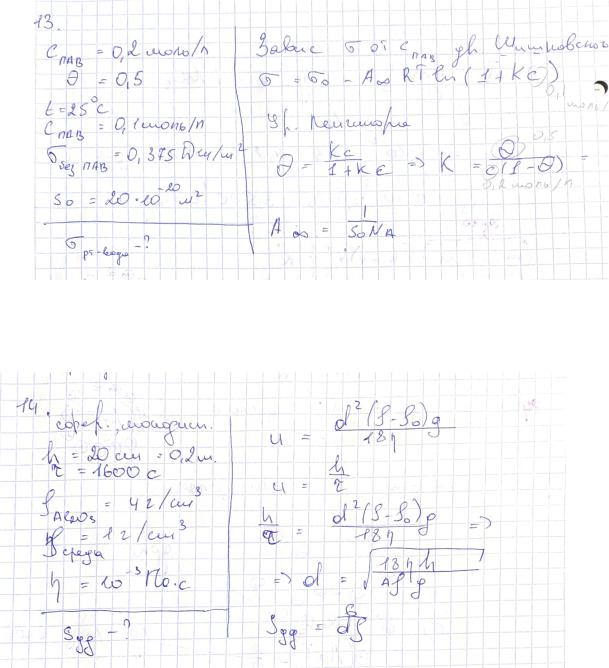 13.
C ПАВ = 0,2 моль/л
θ = 0,5
t = 25°C
C ПАВ = 0,1 моль/л
σ без ПАВ = 0,375 Дж/м²
S₀ = 20·10⁻²⁰ м²
σ рт-вода - ?
Завис σ от C ПАВ ур. Шишковского
σ = σ₀ - A∞ RT ln(1 + Kc)
0,1 моль/
Ур. Ленгмюра
θ = Kc / (1 + Kc) => K = θ / (c(1 - θ)) =
0,5
0,2 моль/л
A∞ = 1 / (S₀ N_A)
14.
сфер., монодисп.
h = 20 см = 0,2 м.
τ = 1600 с
ρ Al₂O₃ = 4 г/см³
ρ среда = 1 г/см³
η = 10⁻³ Па·с
S уд - ?
u = d²(ρ - ρ₀)g / 18η
u = h / τ
h / τ = d²(ρ - ρ₀)g / 18η =>
=> d = √(18ηh / Δρ g)
S уд = 6 / dρ